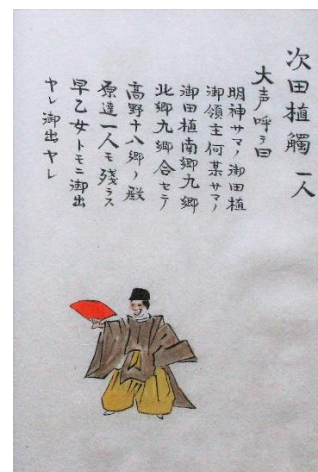 次田植觸 一人
大声呼ヲ曰
明神サマノ御田植
御領主何某サマノ
御田植南郷九郷
北郷九郷合セテ
高野十八郷ノ殿
原達一人モ残ラス
早乙女トモニ御出
ヤレ御出ヤレ